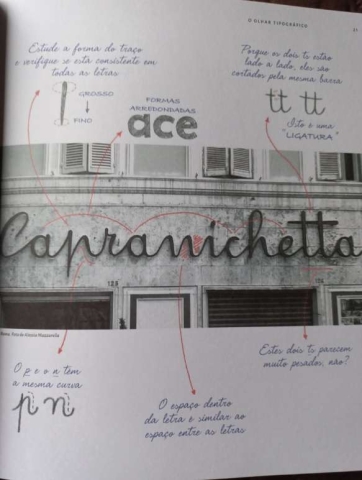 O OLHAR TIPOGRÁFICO
21
Estude a forma do traço
e verifique se está consistente em
todas as letras
GROSSO
FINO
FORMAS
ARREDONDADAS
ace
Porque os dois ts estão
lado a lado, eles são
cortados pela mesma barra
tt tt
Isto é uma
"LIGATURA"
Capranichetta
125
126
O p e o n têm
a mesma curva
p n
O espaço dentro
da letra é similar ao
espaço entre as letras
Estes dois ts parecem
muito pesados, não?